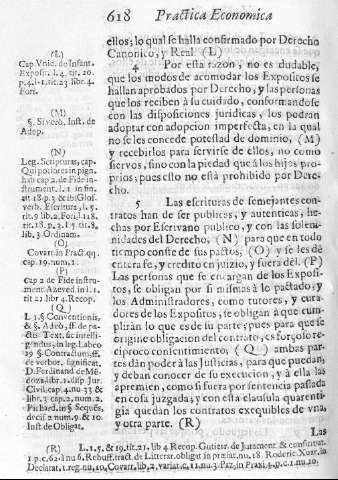 618 Practica Economica
ellos; lo qual se halla confirmado por Derecho
Canonico, y Real. (L)
4 Por esta razon, no es dudable,
que los modos de acomodar los Expositos se
hallan aprobados por Derecho, y las personas
que los reciben à su cuidado, conformandose
con las disposiciones juridicas, los podran
adoptar con adopcion imperfecta, en la qual
no se les concede potestad de dominio, (M)
y recebirlos para servirse de ellos, no como
siervos, sino con la piedad que à los hijos pro-
prios; pues esto no està prohibido por Dere-
cho.
5 Las escrituras de semejantes con-
tratos han de ser publicas, y autenticas, he-
chas por Escrivano publico, y con las solem-
nidades del Derecho, (N) para que en todo
tiempo conste de sus pactos, (O) y se les dè
entera fe, y credito en juizio, y fuera del. (P)
Las personas que se encargan de los Exposi-
tos, se obligan por si mismas à lo pactado; y
los Administradores, como tutores, y cura-
dores de los Expositos, se obligan à que cum-
pliràn lo que es de su parte; pues para que se
origine obligacion del contrato, es forçoso re-
ciproco consentimiento; (Q) ambas par-
tes dàn poder à las Justicias, para que puedan,
y deban conocer de su execucion, y à ella las
apremien, como si fuera por sentencia passada
en cosa juzgada; y con esta clausula quarenti-
gia quedan los contratos exequibles de vna,
y otra parte. (R)
Las
(L)
Cap. Vnic. de Infant.
Exposit. l. 4. tit. 20.
p. 4. l. 1. tit. 23. lib. 4.
Fori.
(M)
§. Si verò, Inst. de
Adop.
(N)
Leg. Scripturas, cap.
Qui potiores in pign.
hab. cap. 2. de Fide in-
strument. l. 1. in fin.
tit. 18. p. 3. & ibi Glos.
verb. Escritura, l. 5.
tit. 9. lib. 2. Fori, l. 118.
tit. 18. p. 3. l. 5. tit. 8.
lib. 3. Ordinam.
(O)
Covarr. in Pract. qq.
cap. 19. num. 2.
(P)
Cap. 2. de Fide instru-
ment. Azeved. in l. 1.
tit. 21. lib. 4. Recop.
(Q)
L. 1. § Conventionis,
& §. Adeò, ff. de pa-
cto. Text. sic intelli-
gendus, in leg. Labeo
19. § Contractum, ff.
de verbor. significat.
D. Ferdinand. de Me-
doza, lib. 1. disp. Jur.
Civil. cap. 4. nu. 33. &
lib. 3. cap. 2. num. 2.
Pichard. in § Sequēs,
decis. 2. num. 9. & 10.
Inst. de Obligat.
(R) L. 1. 5. & 19. tit. 21. lib. 4. Recop. Gutierr. de Jurament. & confirmat.
1. p. c. 62. à nu. 6. Rebuff. tract. de Litterar. obligat. in præfat. nu. 18. Roderic. Xuar. in
Declarat. 1. reg. nu. 10. Covarr. lib. 2. variar. c. 11. nu. 3. Paz, in Praxi 4. p. c. 1. nu. 10.